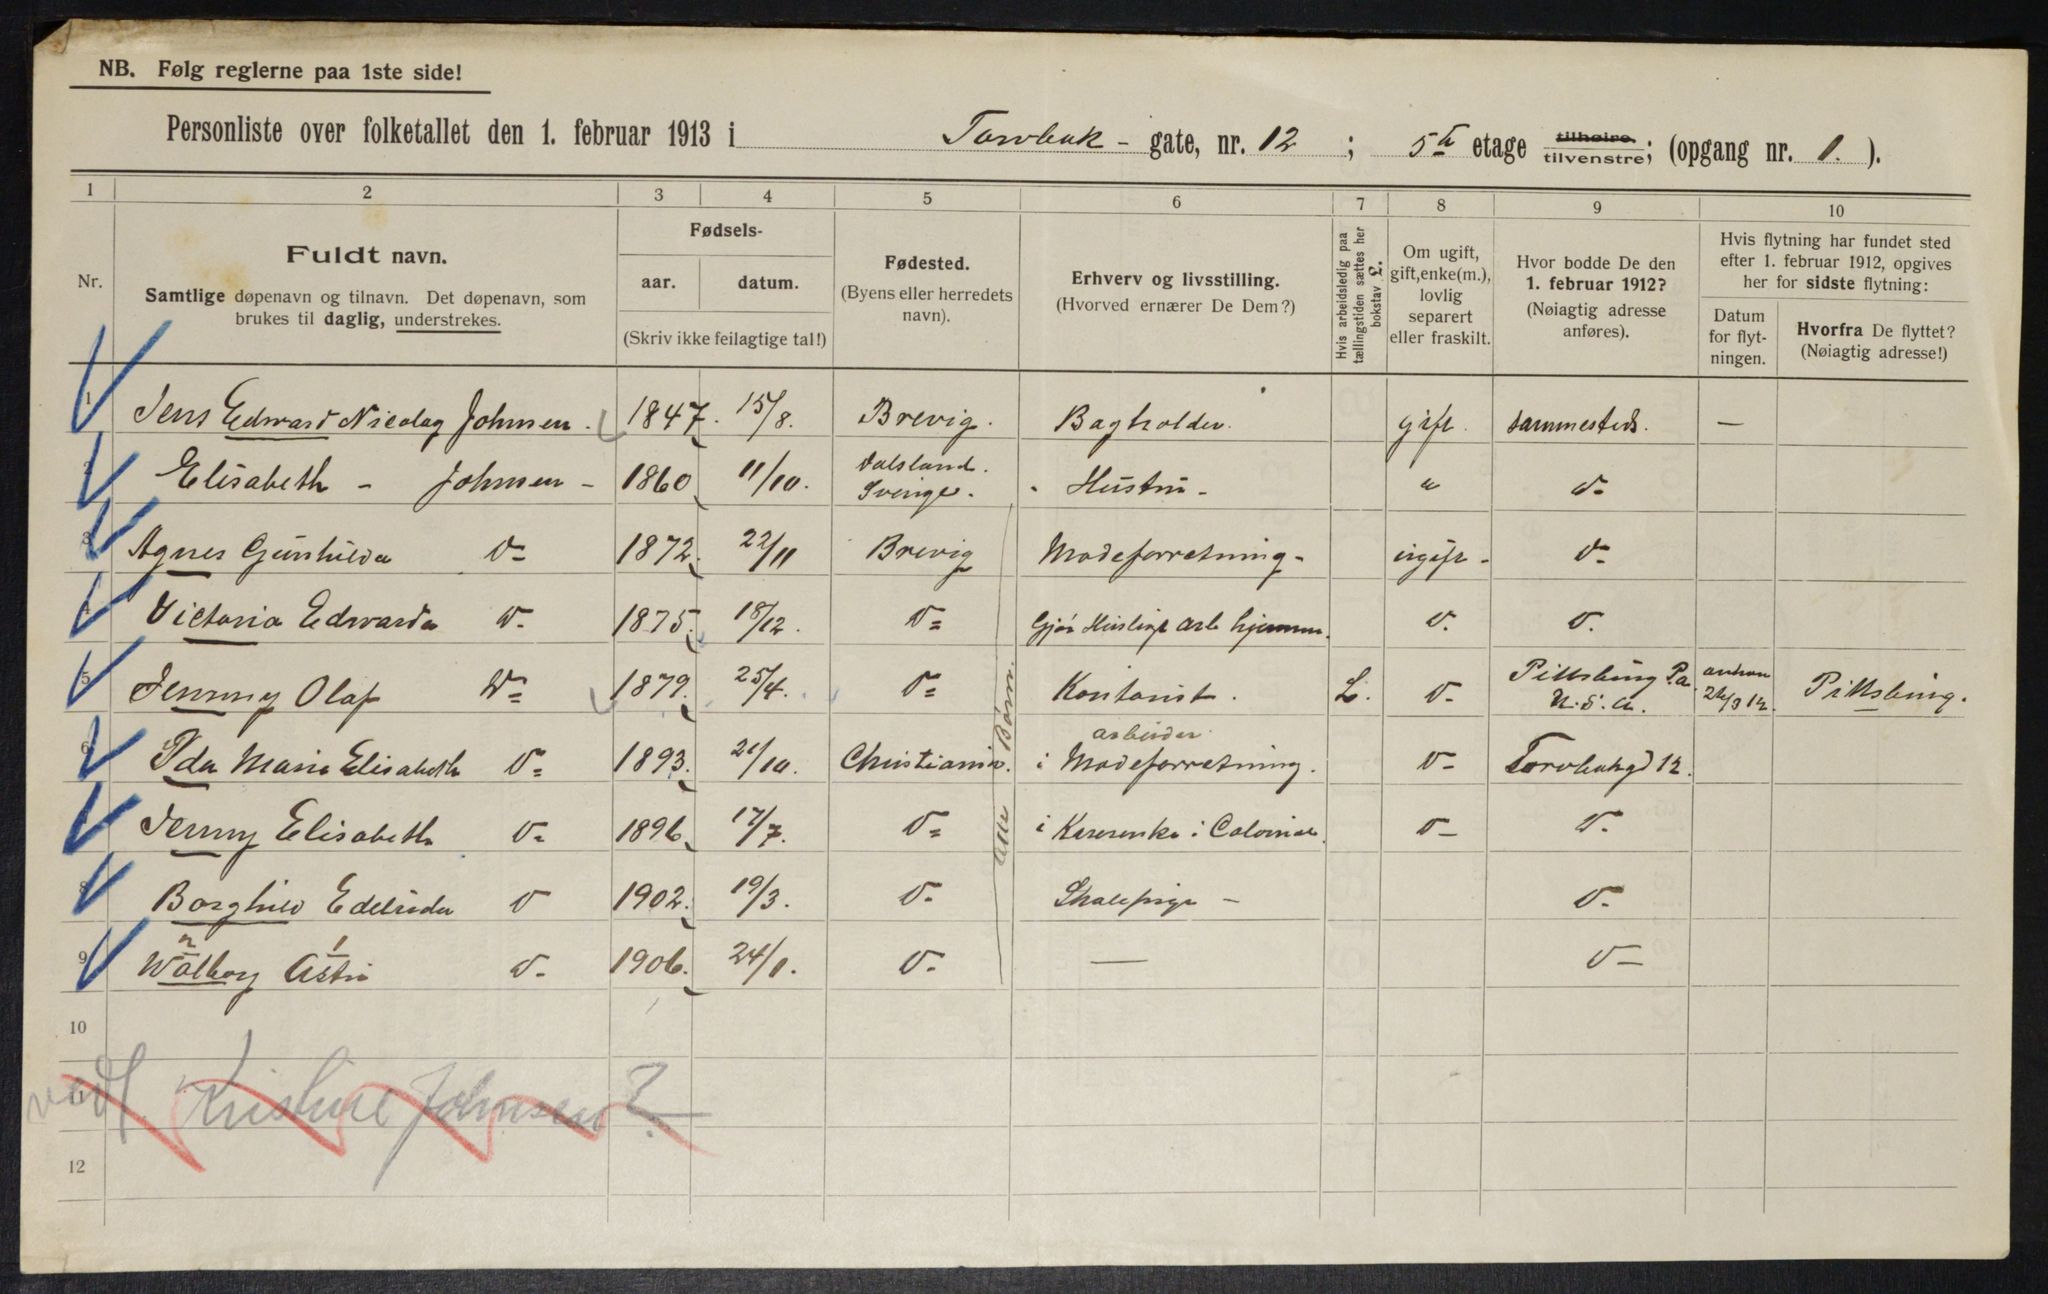 NB. Følg reglerne paa 1ste side!
Personliste over folketallet den 1. februar 1913 i Torvbak - gate, nr. 12 ; 5te etage tilhøire. tilvenstre; (opgang nr. 1. ).
1 2 3 4 5 6 7 8 9 10
Nr. Fuldt navn. Samtlige døpenavn og tilnavn. Det døpenavn, som brukes til daglig, understrekes.
Fødsels- aar. datum. (Skriv ikke feilagtige tal!)
Fødested. (Byens eller herredets navn).
Erhverv og livsstilling. (Hvorved ernærer De Dem?)
Hvis arbeidsledig paa tællingstiden sættes her bokstav L.
Om ugift, gift, enke(m.), lovlig separert eller fraskilt.
Hvor bodde De den 1. februar 1912? (Nøiagtig adresse anføres).
Hvis flytning har fundet sted efter 1. februar 1912, opgives her for sidste flytning:
Datum for flyt- ningen. Hvorfra De flyttet? (Nøiagtig adresse!)
1 Jens Edward Nicolay Johnsen. 1847. 15/8. Brevig. Bagholder. gift. sammesteds. —
2 Elisabeth - Johnsen - 1860 11/10. Dalsland. Sverige. Hustru - " d-
3 Agnes Gunhilda D= 1872. 22/11 Brevig Modeforretning - ugift - D-
4 Victoria Edwarda D- 1875. 18/12. D= Gjør Huslige arb hjemme. D. D.
5 Jemmy Olaf D= 1879. 25/4. D= Kontorist. L. D- Pittsburg Pa. U.S.A. 26/3 12. Pittsburg.
6 Ida Marie Elisabeth D= 1893. 21/10. Christiania. arbeider i Modeforretning. D- Torvbakgd 12.
7 Jenny Elisabeth D- 1896. 17/7. D= i D- D-
8 Borghild D 1902. 19/3. D- Skolepige - D-
9 Astri D- 1906. 24/1. D- — D-
Alle Børn.
10
11 Kristine Johnsen?
12